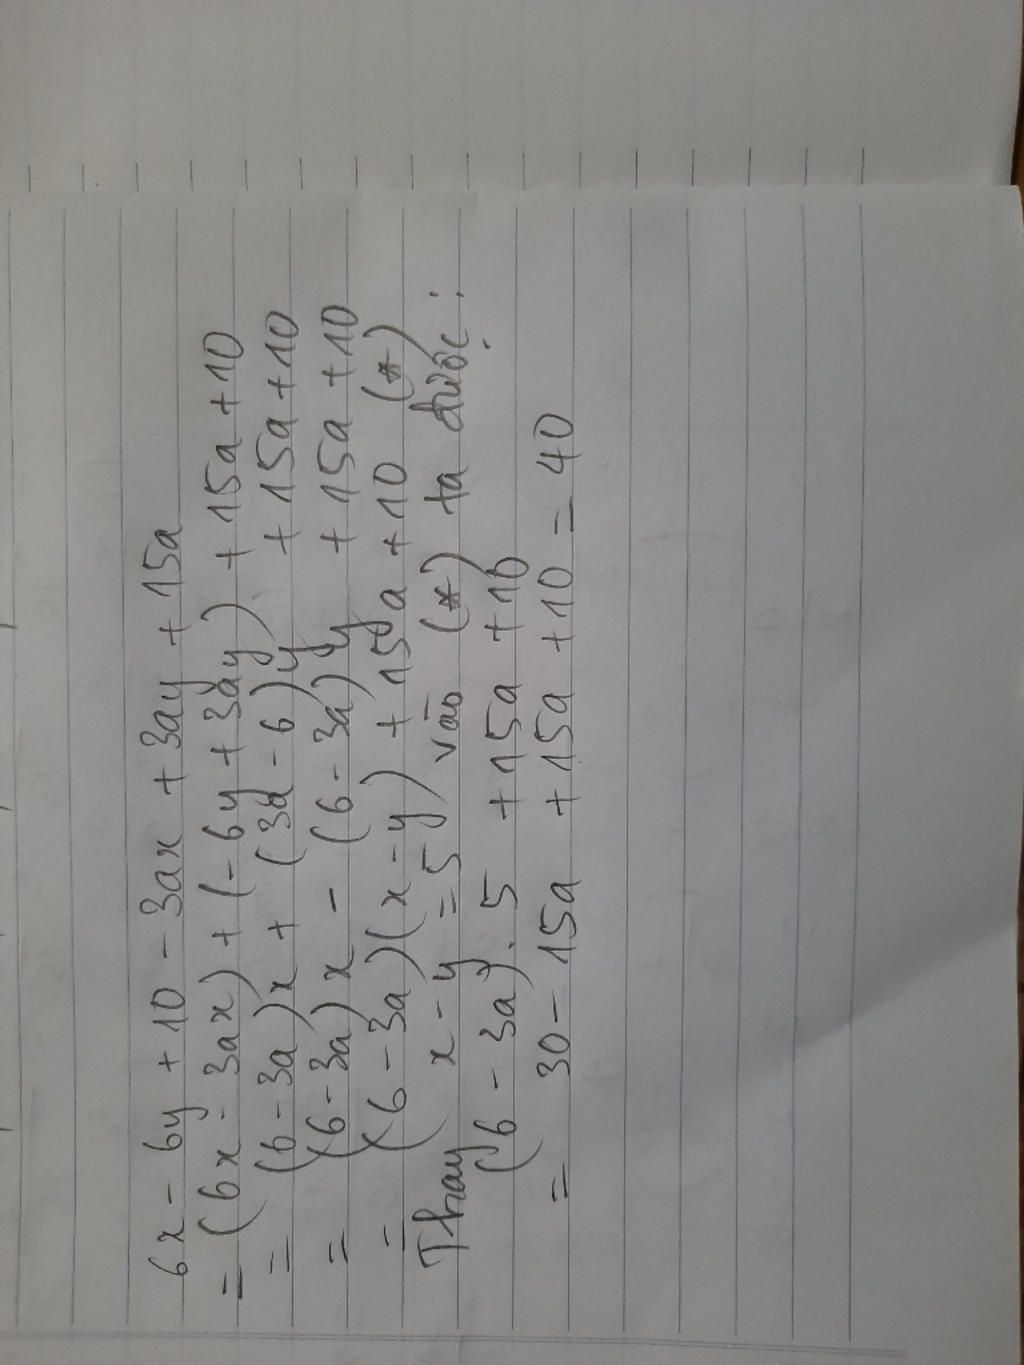 6x - 6y + 10 - 3ax + 3ay + 15a
= (6x - 3ax) + (-6y + 3ay) + 15a + 10
= (6 - 3a)x + (3a - 6)y + 15a + 10
= (6 - 3a)x - (6 - 3a)y + 15a + 10
= (6 - 3a)(x - y) + 15a + 10 (*)
Thay x - y = 5 vào (*) ta được:
(6 - 3a).5 + 15a + 10
= 30 - 15a + 15a + 10 = 40